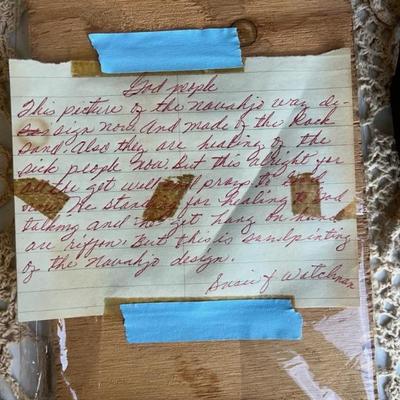 God people
This picture of the navahjo way de-
sign now. And made of the Rock
sand. Also they are healing of the
sick people now. But this alright for
all the get well and prays to God
now. He standing for healing to God
talking and he get hang on hand
are But this is sandpinting
of the navahjo design.
Watchman